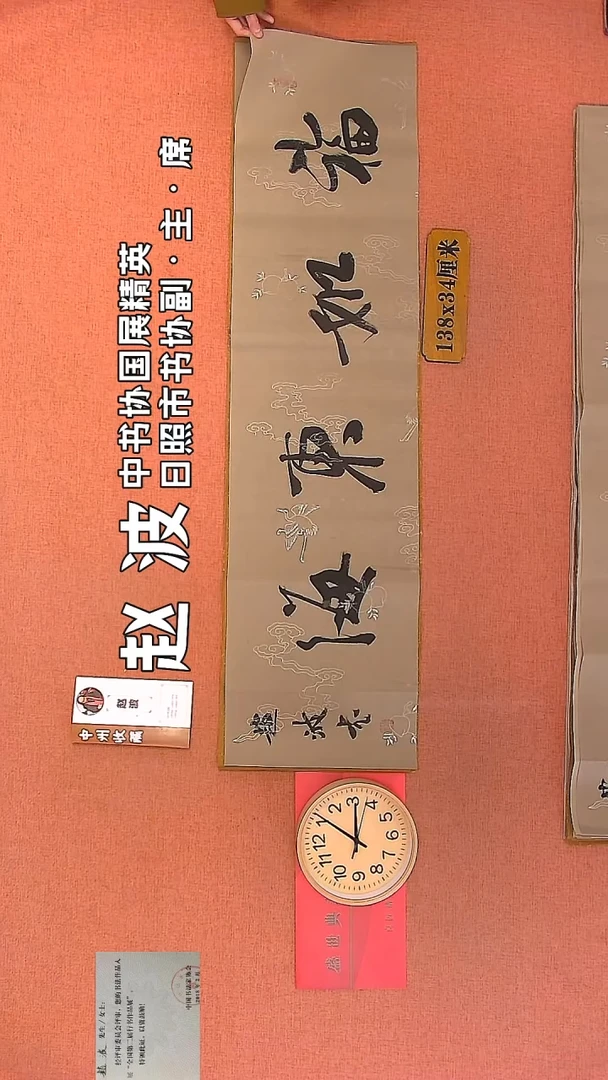 赵波
中书协国展精英
日照市书协副·主·席
福如东海
赵波书
138x34厘米
赵波
中州收藏
12
1
2
3
4
5
6
7
8
9
10
11
盛世典
赵波 先生／女士：
经评审委员会评审，您的书法作品入
展“全国第二届行书作品展”，
特颁此证，以资鼓励！
中国书法家协会